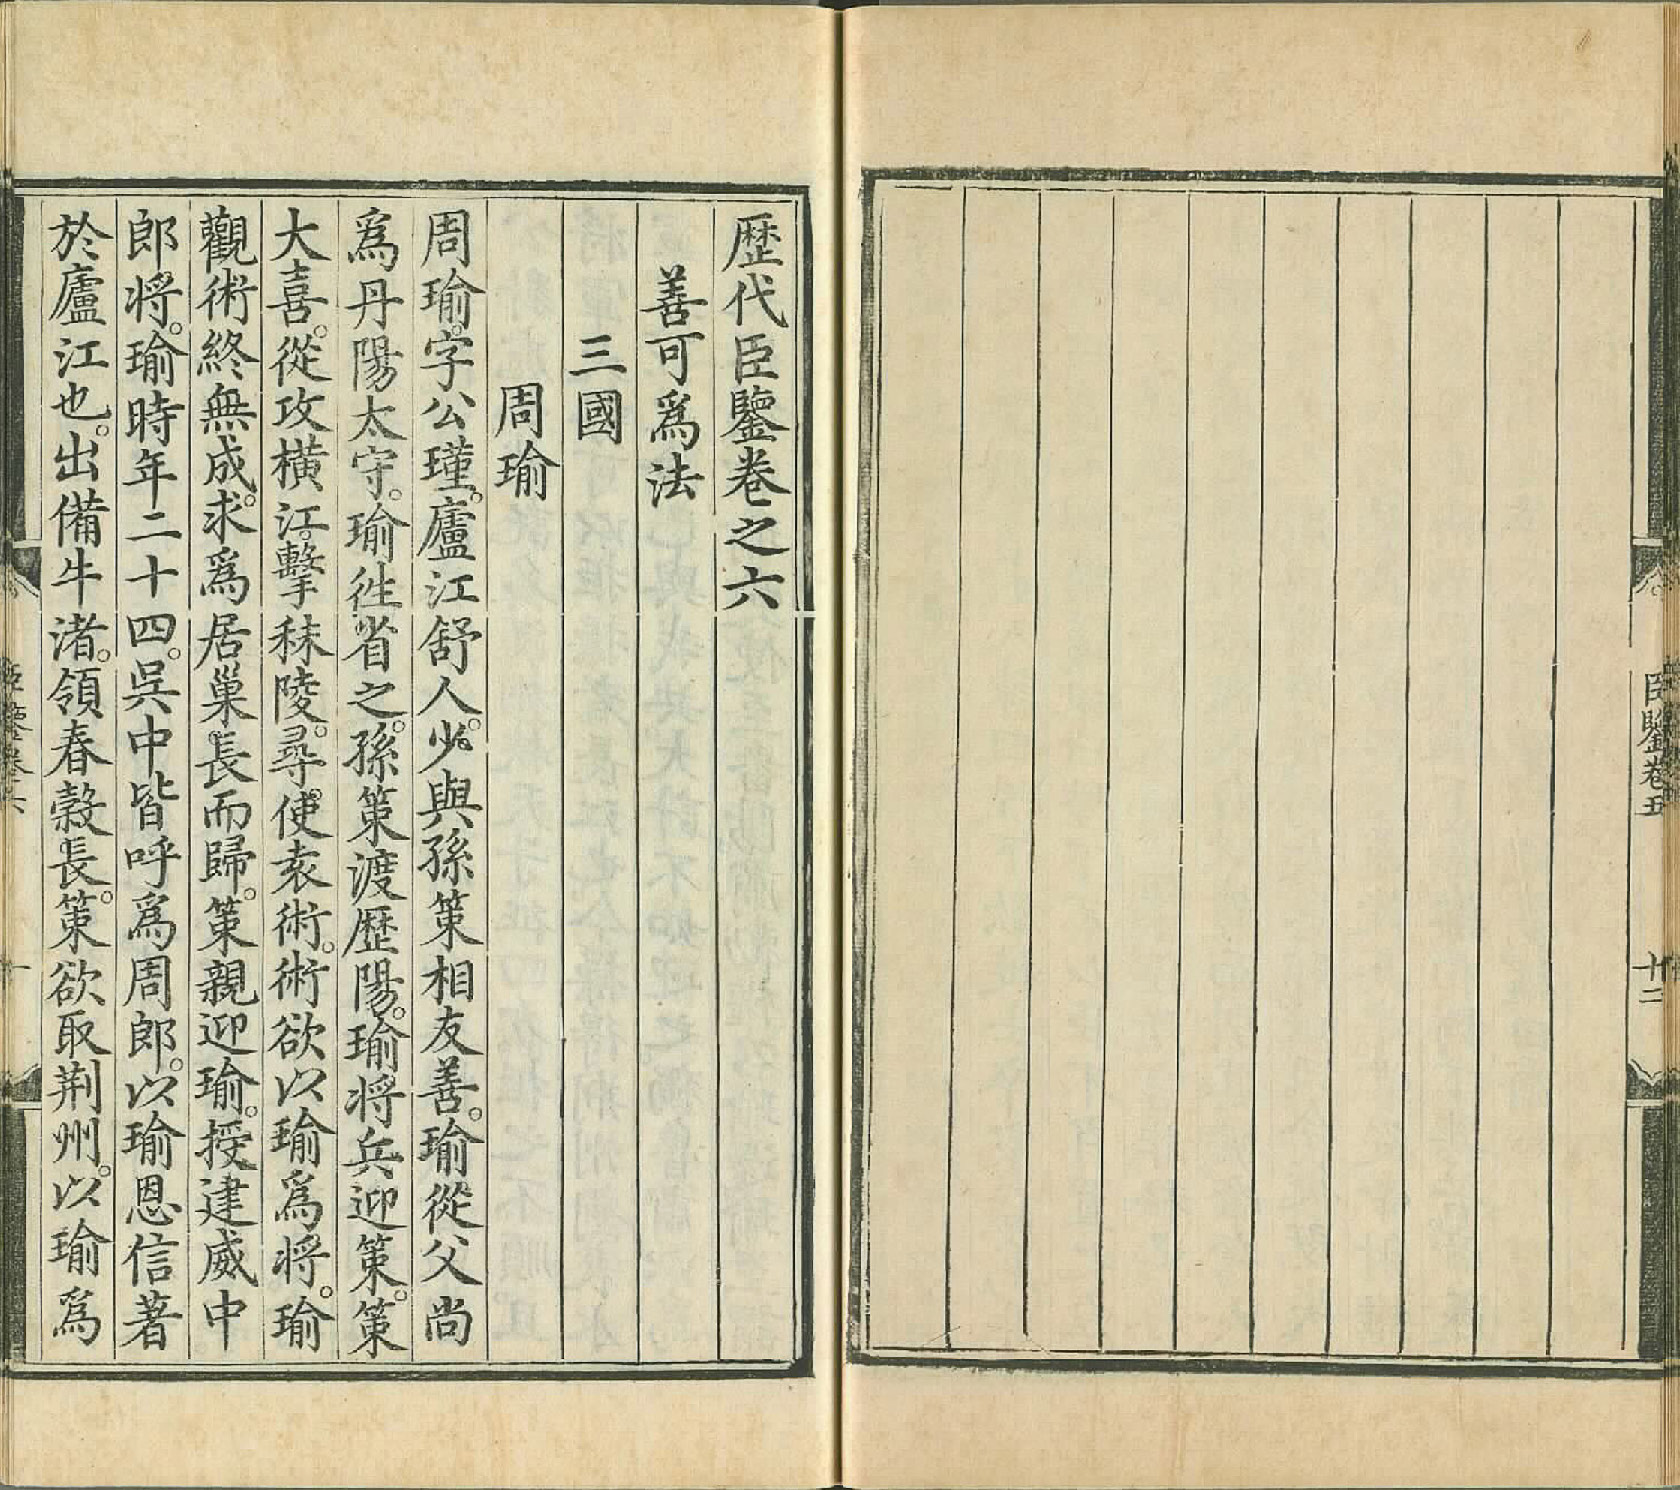 臣鑒卷五
十二
歷代臣鑒卷之六
善可爲法
三國
周瑜
周瑜。字公瑾。廬江舒人。少與孫策相友善。瑜從父尚
爲丹陽太守。瑜徃省之。孫策渡歷陽。瑜將兵迎策。策
大喜。從攻橫江。擊秣陵。尋使袁術。術欲以瑜爲將。瑜
觀術終無成。求爲居巢長而歸。策親迎瑜。授建威中
郎將。瑜時年二十四。吳中皆呼爲周郎。以瑜恩信著
於廬江也。出備牛渚。領春穀長。策欲取荆州。以瑜爲
臣鑒卷六
一